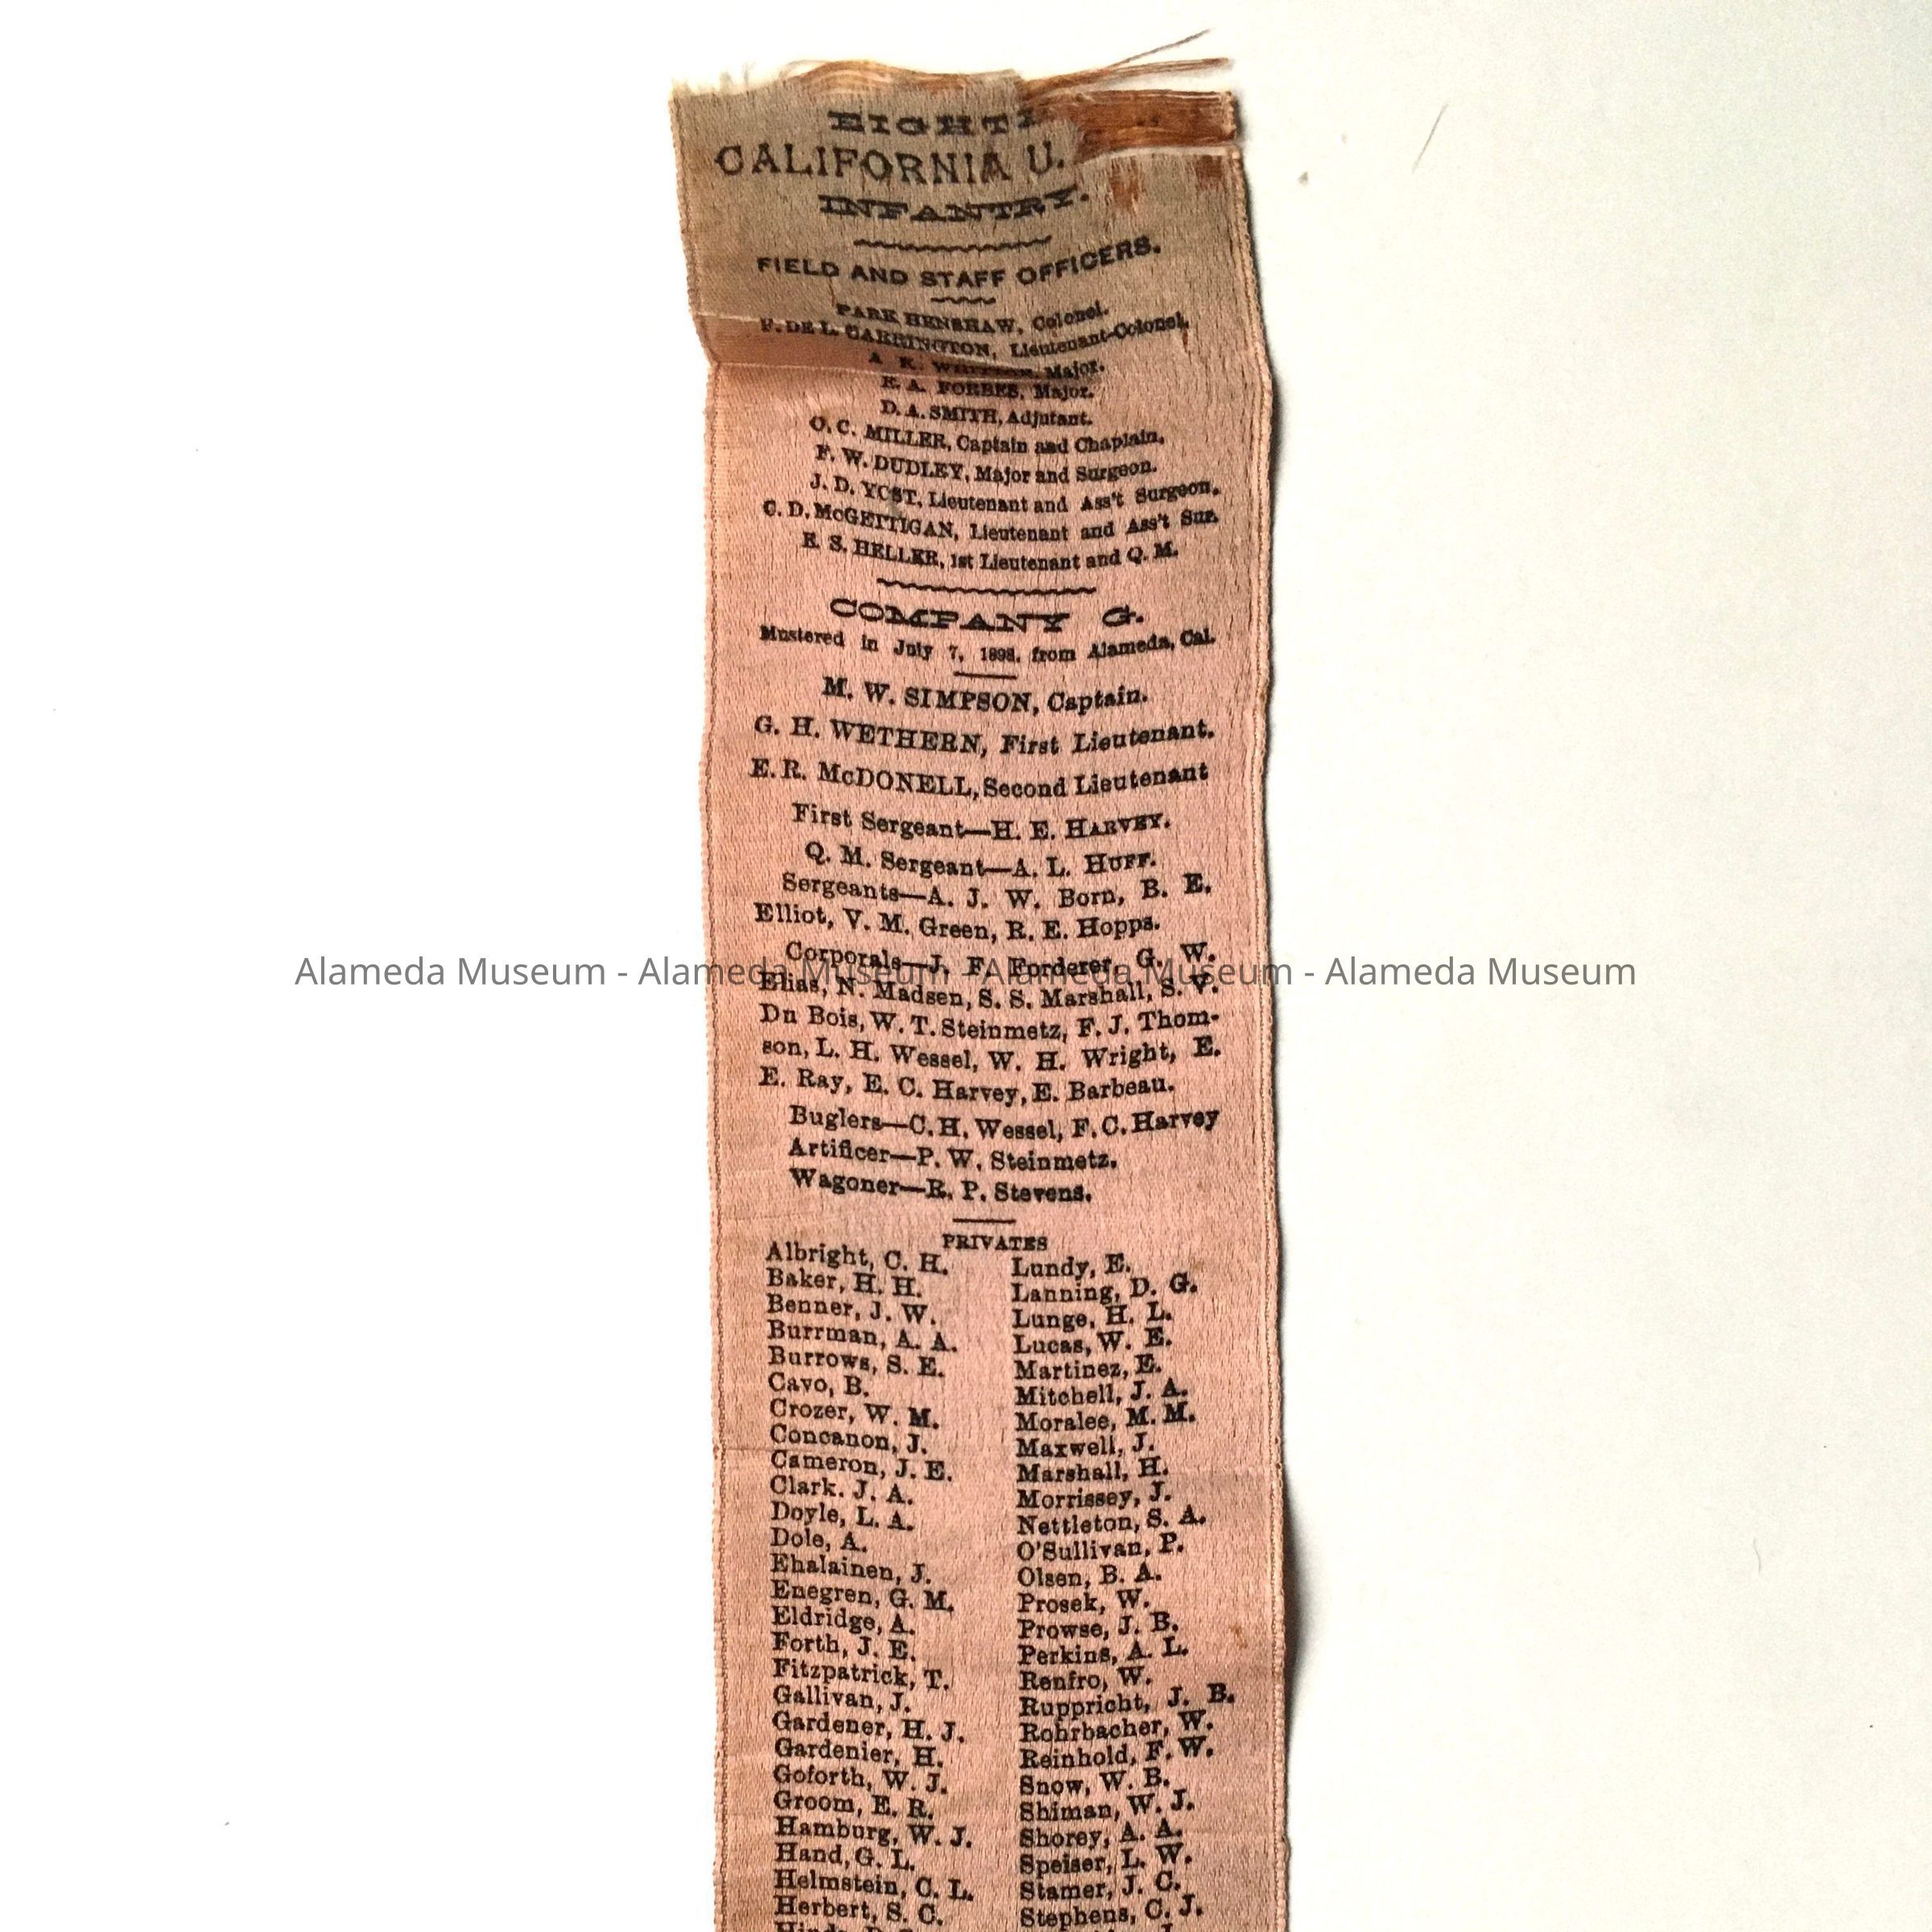 EIGHT
CALIFORNIA U.
INFANTRY.
FIELD AND STAFF OFFICERS.
PARK HENSHAW, Colonel.
F. DE L. CARRINGTON, Lieutenant-Colonel.
A. K. Major.
R. A. FORBES, Major.
D. A. SMITH, Adjutant.
O. C. MILLER, Captain and Chaplain.
F. W. DUDLEY, Major and Surgeon.
J. D. YOST, Lieutenant and Ass't Surgeon.
C. D. McGETTIGAN, Lieutenant and Ass't Sur.
E. S. HELLER, 1st Lieutenant and Q. M.
COMPANY G.
Mustered in July 7, 1898, from Alameda, Cal.
M. W. SIMPSON, Captain.
G. H. WETHERN, First Lieutenant.
E. R. McDONELL, Second Lieutenant
First Sergeant—H. E. HARVEY.
Q. M. Sergeant—A. L. HUFF.
Sergeants—A. J. W. Born, B. E.
Elliot, V. M. Green, R. E. Hopps.
Corporals—J. F. Forderer, G. W.
Alameda Museum - Alameda Museum - Alameda Museum - Alameda Museum
Elias, N. Madsen, S. S. Marshall, S. V.
Du Bois, W. T. Steinmetz, F. J. Thom-
son, L. H. Wessel, W. H. Wright, E.
E. Ray, E. C. Harvey, E. Barbeau.
Buglers—C. H. Wessel, F. C. Harvey
Artificer—P. W. Steinmetz.
Wagoner—R. P. Stevens.
PRIVATES
Albright, C. H.
Baker, H. H.
Benner, J. W.
Burrman, A. A.
Burrows, S. E.
Cavo, B.
Crozer, W. M.
Concanon, J.
Cameron, J. E.
Clark. J. A.
Doyle, L. A.
Dole, A.
Ehalainen, J.
Enegren, G. M.
Eldridge, A.
Forth, J. E.
Fitzpatrick, T.
Gallivan, J.
Gardener, H. J.
Gardenier, H.
Goforth, W. J.
Groom, E. R.
Hamburg, W. J.
Hand, G. L.
Helmstein, C. L.
Herbert, S. C.
Lundy, E.
Lanning, D. G.
Lunge, H. L.
Lucas, W. E.
Martinez, E.
Mitchell, J. A.
Moralee, M. M.
Maxwell, J.
Marshall, H.
Morrissey, J.
Nettleton, S. A.
O'Sullivan, P.
Olsen, B. A.
Prosek, W.
Prowse, J. B.
Perkins, A. L.
Renfro, W.
Ruppricht, J. B.
Rohrbacher, W.
Reinhold, F. W.
Snow, W. B.
Shiman, W. J.
Shorey, A. A.
Speiser, L. W.
Stamer, J. C.
Stephens, C. J.